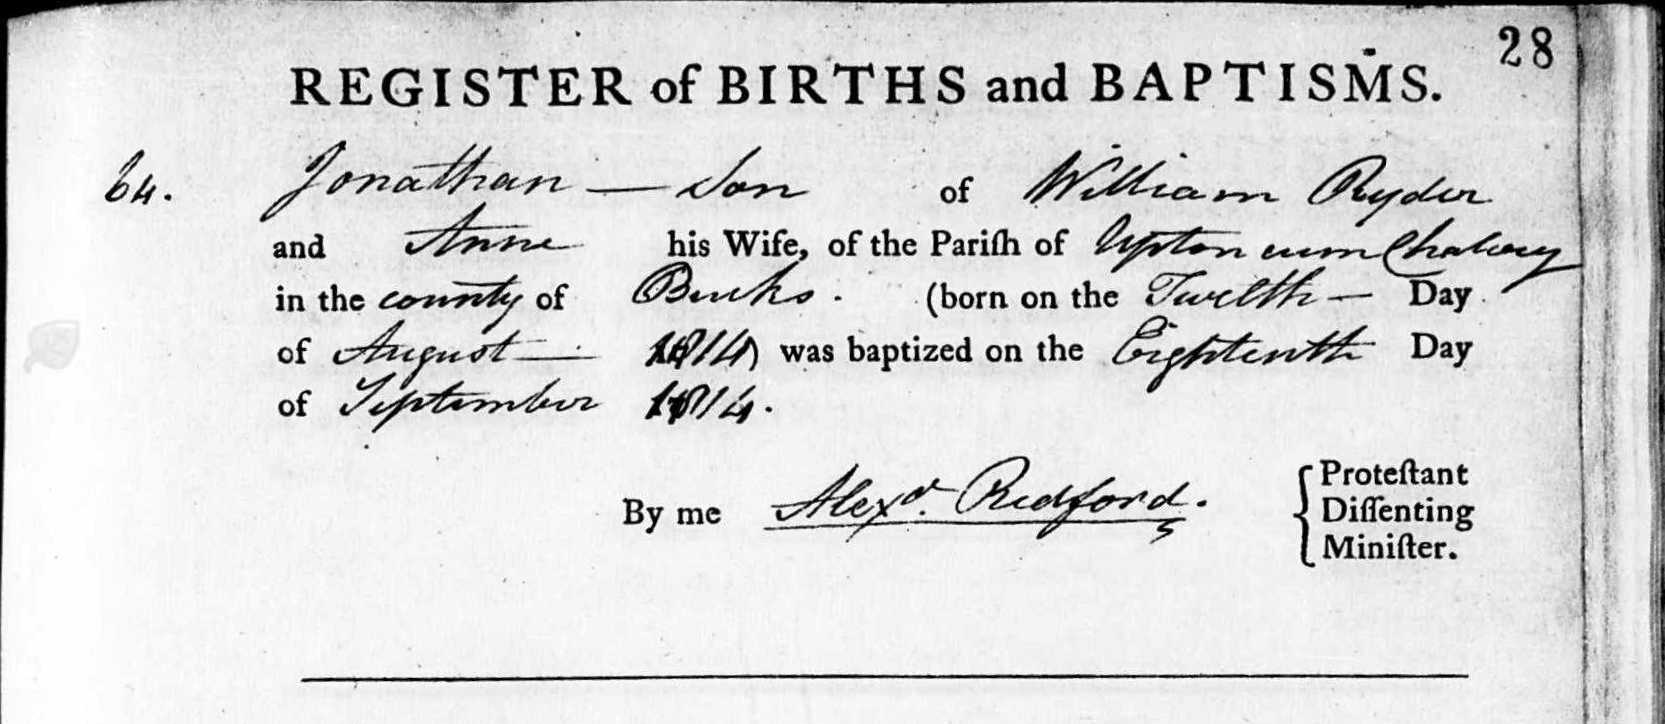 28
REGISTER of BIRTHS and BAPTISMS.
64. Jonathan — Son of William Ryder
and Anne his Wife, of the Pariſh of Upton cum Chalvey
in the county of Bucks. (born on the Twelth — Day
of August — 1814) was baptized on the Eightenth Day
of September 1814.
By me Alexr. Redford. { Proteſtant
Diſſenting
Miniſter.